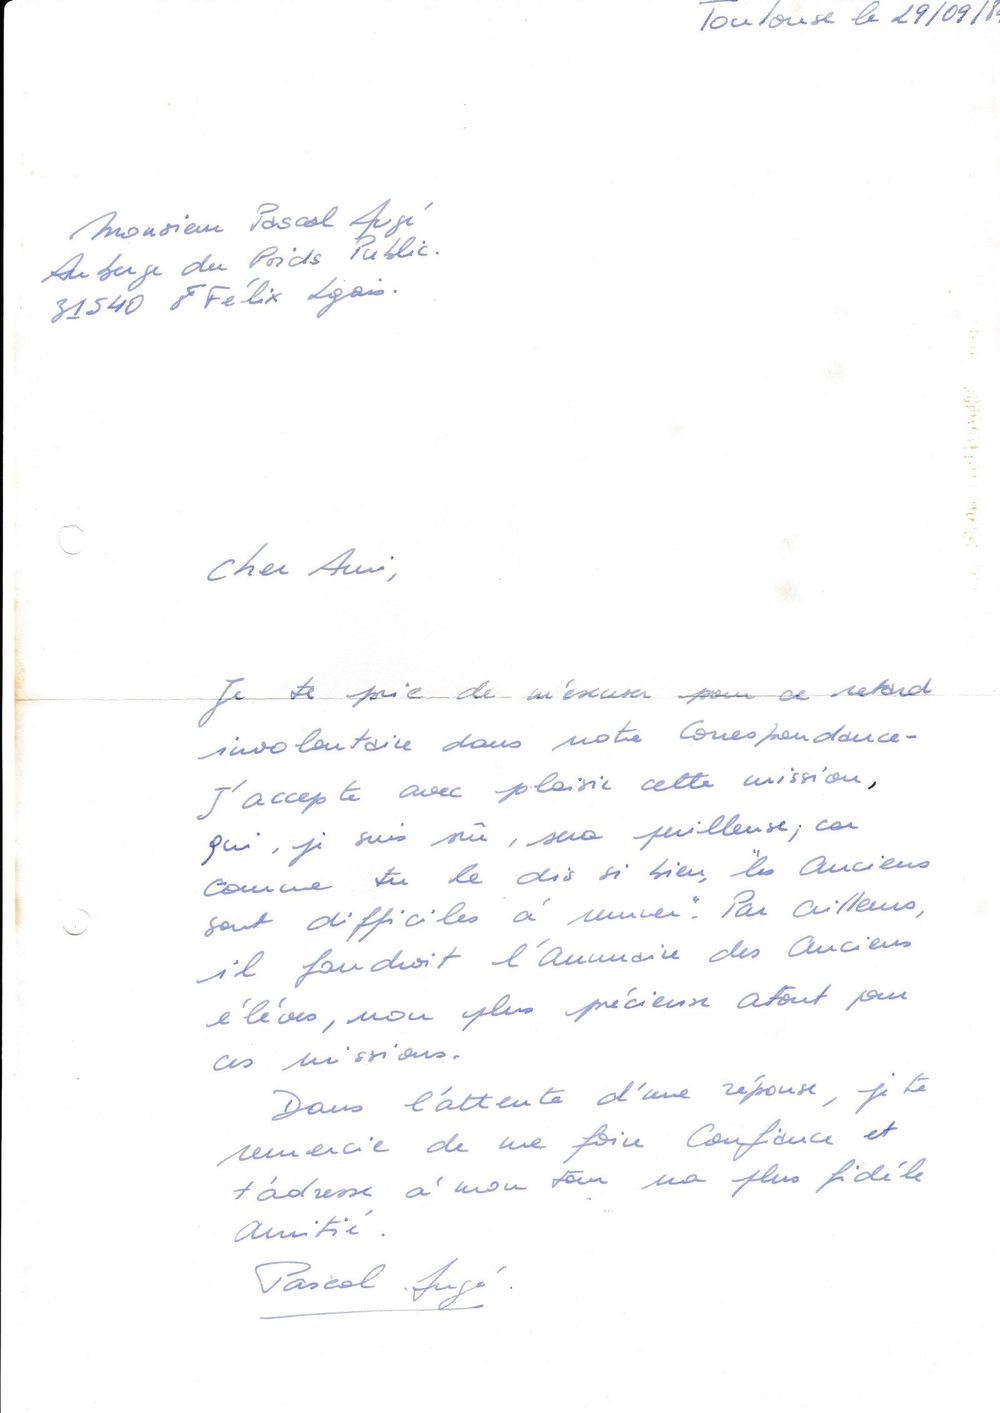 Toulouse le 29/09/8
Monsieur Pascal Augé
Auberge du Poids Public.
31540 St Félix Lgais.
Cher Ami,
Je te prie de m'excuser pour ce retard
involontaire dans notre Correspondance-
J'accepte avec plaisir cette mission,
qui, je suis sûr, sera périlleuse; car
comme tu le dis si bien, "les Anciens
sont difficiles à remuer". Par ailleurs,
il faudrait l'Annuaire des Anciens
élèves, mon plus précieux atout pour
ces missions.
Dans l'attente d'une réponse, je te
remercie de me faire Confiance et
t'adresse à mon tour ma plus fidèle
Amitié.
Pascal Augé.